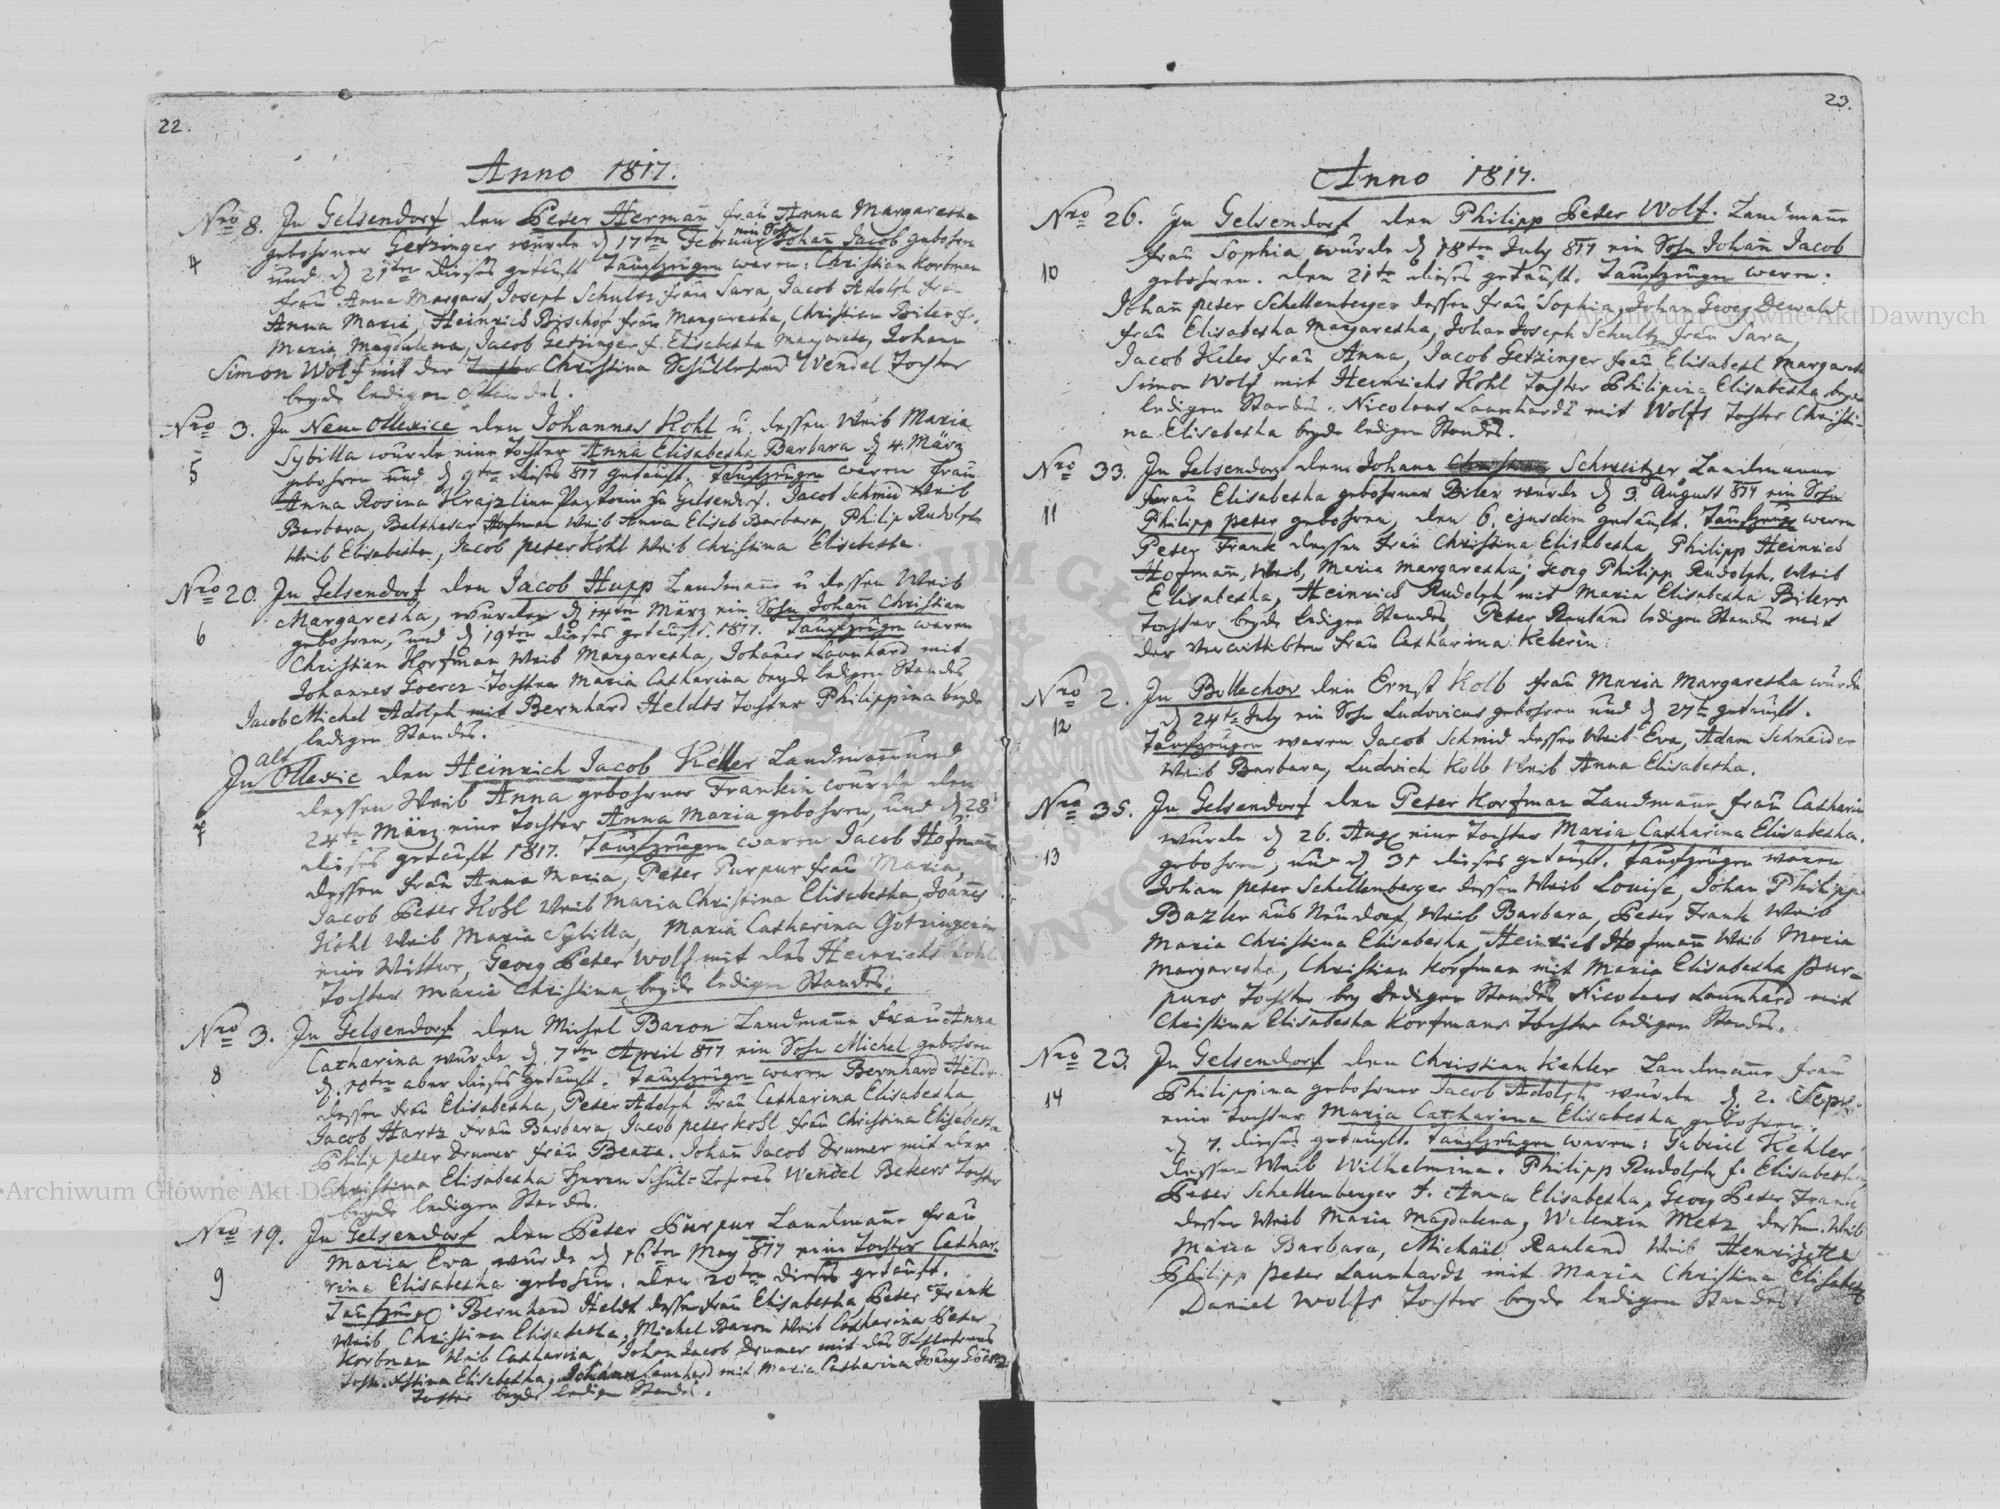 22.
Anno 1817.
Nro 8. In Gelsendorf den Peter Hermañ frau Anna Margaretha
ein Sohn
gebohrner Getzinger wurde d 17ten Februar Johañ Jacob gebohren
4
und d 21ten dieses getauft Taufzeugen waren: Christian Korfman
frau Anna Margaret, Joseph Schultz frau Sara, Jacob Adolph frau
Anna Maria, Heinrich Bischof frau Margaretha, Christian Biler f.
Maria Magdalena, Jacob Getzinger f. Elisabetha Margareta, Johann
Simon Wolf mit der Tochter Christina Schullehrers Wendel Tochter
beyde ledigen Standes.
Nro 3. In Neu Ollexice den Johannes Kohl u. dessen Weib Maria
Sybilla wurde eine Tochter Anna Elisabetha Barbara d 4. März
5
gebohren und d 9ten dieses 817 getauft. Taufzeugen waren frau
Anna Rosina Pastorin zu Gelsendorf. Jacob Schmid Weib
Barbara, Balthasar Hofman Weib Anna Elisab Barbara, Philip Rudolph
Weib Elisabetha, Jacob peter Kohl Weib Christina Elisabetha.
Nro 20. In Gelsendorf den Jacob Hupp Landmañ u dessen Weib
Margaretha, wurde d 14ten März ein Sohn Johañ Christian
6
gebohren, und d 19ten dieses getauft. 1817. Taufzeugen waren
Christian Korfman Weib Margaretha, Johañes Launhard mit
Johannes Goercz Tochter Maria Catharina beyde ledigen Standes
Jacob Michel Adolph mit Bernhard Heldts Tochter Philippina beyde
ledigen Standes.
alt
In Ollexic den Heinrich Jacob Keller Landmañ und
dessen Weib Anna gebohrner Frankin wurde den
24ten März eine Tochter Anna Maria gebohren, und d 28.
7
dieses getauft 1817. Taufzeugen waren Jacob Hofmañ
dessen frau Anna Maria, Peter Purpur frau Maria,
Jacob Peter Kohl Weib Maria Christina Elisabetha, Joañes
Kohl Weib Maria Sybilla, Maria Catharina Götzingerin
eine Wittwe, Georg Peter Wolf mit des Heinrichs Kohl
Tochter Maria Christina beyde ledigen Standes.
Nro 3. In Gelsendorf den Michel Baron Landmañ Frau Anna
Catharina wurde d 7ten April 817 ein Sohn Michel gebohren
8
d. 10ten aber dieses getauft. Taufzeugen waren Bernhard Heldt
dessen frau Elisabetha, Peter Adolph frau Catharina Elisabetha
Jacob Hartz frau Barbara, Jacob peter Kohl frau Christina Elisabetha
Philip peter Drumer frau Beata. Johañ Jacob Drumer mit der
Christina Elisabetha Herrn Schul-Lehrers Wendel Bekers Tochter
beyde ledigen Standes.
Nro 19. In Gelsendorf den Peter Purpur Landmañ frau
Maria Eva wurde d 16ten May 817 eine Tochter Catha-
9
rina Elisabetha gebohren. den 20ten dieses getauft.
Taufzeugen Bernhard Heldt dessen frau Elisabetha Peter Frank
Weib Christina Elisabetha, Michel Baron Weib Catharina Peter
Korfman Weib Catharina, Johan Jacob Drumer mit des Schllehrers
Toch. Elisabetha, Johann Launhard mit Maria Catharina
Tochter beyde ledigen Standes.
23.
Anno 1817.
Nro 26. In Gelsendorf den Philipp Peter Wolf. Landmañ
frau Sophia wurde d 18ten July 817 ein Sohn Johañ Jacob
10
gebohren. den 21ten dieses getauft. Taufzeugen waren.
Johañ peter Schellenberger dessen frau Sophia, Johan Georg Dewald
frau Elisabetha Margaretha, Johan Joseph Schultz frau Sara,
Jacob Hiles frau Anna, Jacob Getzinger frau Elisabeth Margareth
Simon Wolf mit Heinrichs Kohl Tochter Philipina Elisabetha beyde
ledigen Standes. Nicolaus Launhardt mit Wolfs Tochter Christi-
na Elisabetha beyde ledigen Standes.
Nro 33. In Gelsendorf dem Johann Schweitzer Landmann
frau Elisabetha gebohrner Biler wurde d 3. August 817 ein Sohn
11
Philipp peter gebohren, den 6. ejusdem getauft. Taufzeugen waren
Peter Frank dessen frau Christina Elisabetha, Philipp Heinrich
Hofmañ, Weib, Maria Margaretha; Georg Philipp Rudolph. Weib
Elisabetha, Heinrich Rudolph mit Maria Elisabetha Bilers
Tochter beyde ledigen Standes, Peter Rauland ledigen Standes mit
der verwittibten frau Catharina Kelerin.
Nro 2. In Bollechow den Ernst Kolb frau Maria Margaretha wurde
d 24ten July ein Sohn Ludovicus gebohren und d 27ten getauft.
12
Taufzeugen waren Jacob Schmid dessen Weib Eva, Adam Schneider
Weib Barbara, Ludwich Kolb Weib Anna Elisabetha.
Nro 35. In Gelsendorf den Peter Korfman Landmañ frau Catharin
wurde d 26. Aug. eine Tochter Maria Catharina Elisabetha.
13
gebohren, und d 31 dieses getauft. Taufzeugen waren
Johan peter Schellenberger dessen Weib Louise, Johan Philipp
Bazler aus Neudorf, Weib Barbara, Peter Frank Weib
Maria Christina Elisabetha, Heinrich Hofmañ Weib Maria
Margaretha, Christian Korfman mit Maria Elisabetha Pur-
purs Tochter bey ledigen Standes Nicolaus Launhard mit
Christina Elisabetha Korfmans Tochter ledigen Standes.
Nro 23. In Gelsendorf den Christian Kehler Landmañ frau
Philippina gebohrner Jacob Adolph wurde d. 2. Sept.
14
eine Tochter Maria Catharina Elisabetha gebohren.
d 7. dieses getauft. Taufzeugen waren: Gabriel Kehler
dessen Weib Wilhelmina. Philipp Rudolph f. Elisabetha
Peter Schellenberger f. Anna Elisabetha, Georg Peter Frank
dessen Weib Maria Magdalena, Walentin Metz dessen Weib
Maria Barbara, Michael Rauland Weib Henrijetta
Philipp Peter Launhardt mit Maria Christina Elisabeth
Daniel Wolfs Tochter beyde ledigen Standes
Archiwum Główne Akt Dawnych
Archiwum Główne Akt Dawnych